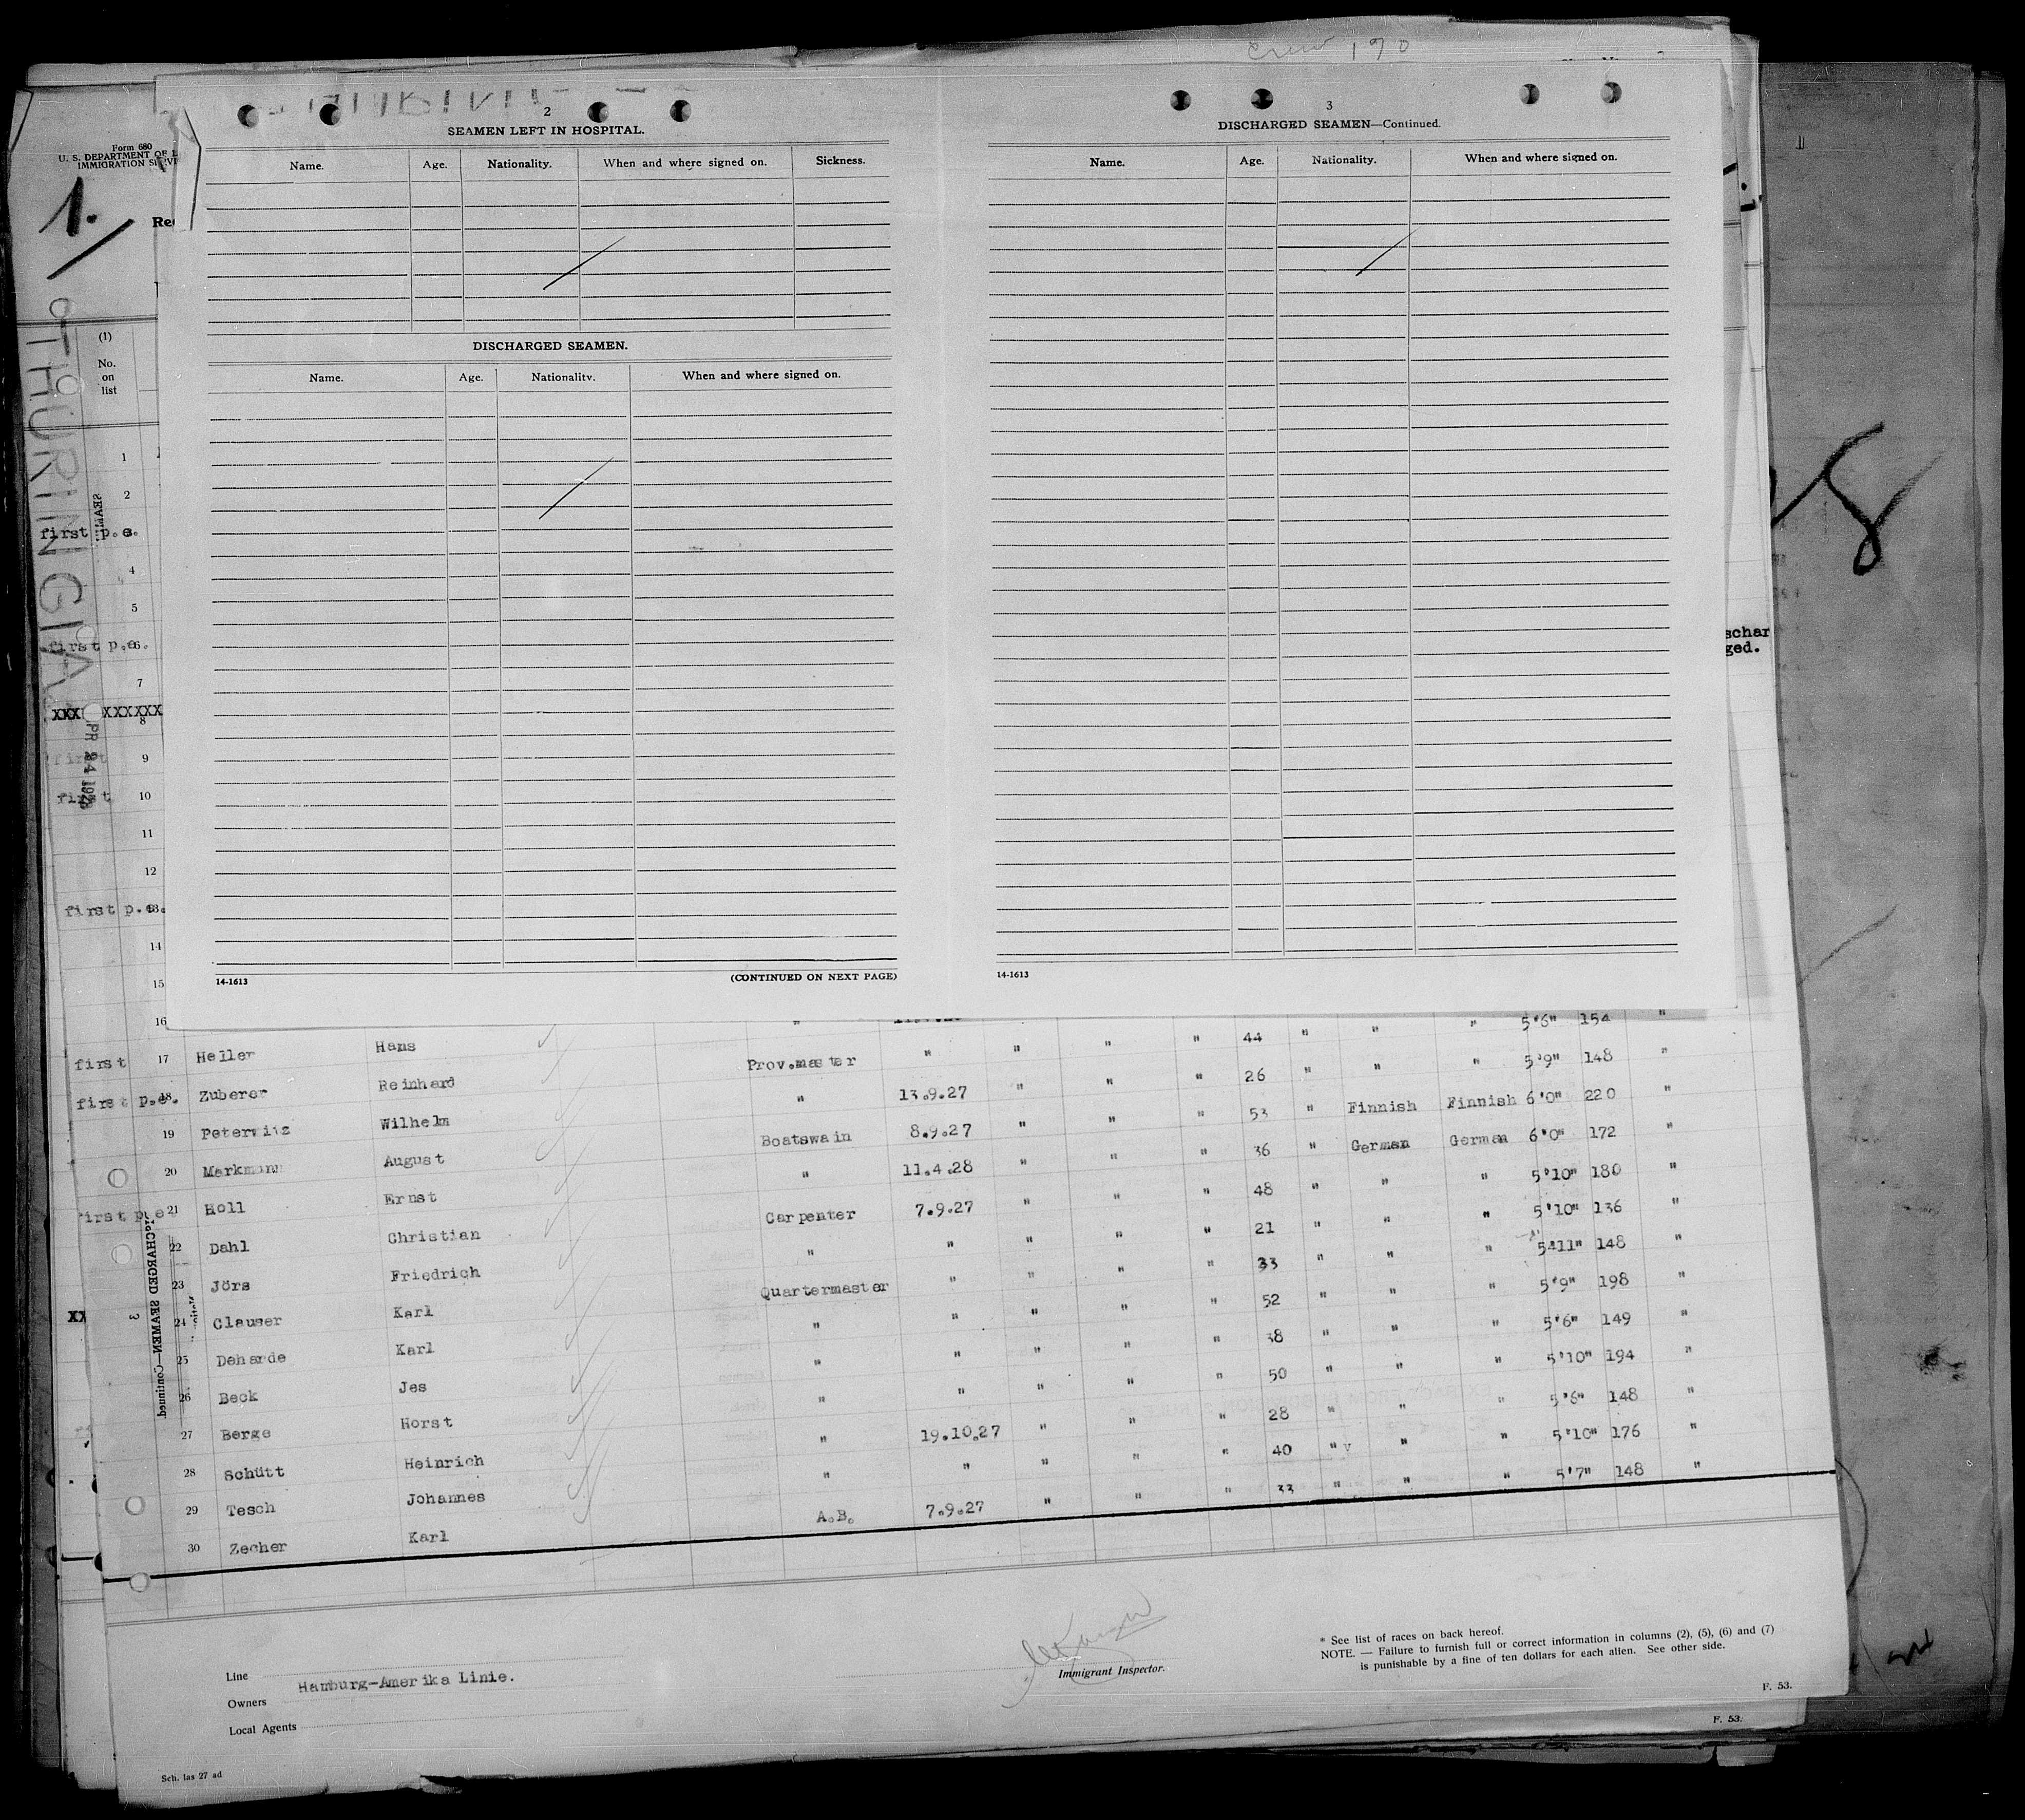 crew 190
Form 680
U. S. DEPARTMENT OF L
IMMIGRATION SERVI
1.
Re
THURINGIA
(1)
No.
on
list
2
SEAMEN LEFT IN HOSPITAL.
Name. Age. Nationality. When and where signed on. Sickness.
DISCHARGED SEAMEN.
Name. Age. Nationality. When and where signed on.
14-1613 (CONTINUED ON NEXT PAGE)
3
DISCHARGED SEAMEN—Continued.
Name. Age. Nationality. When and where signed on.
14-1613
schar
ged.
1
2
first p.e. 3
4
5
first p.e. 6
7
XXX XXXXXX 8
first 9
first 10
11
12
first p.e. 13
14
15
16
" 44 " " " 5'6" 154 "
first 17 Heller Hans Prov.master " " " " 26 " " " 5'9" 148 "
first p.e. 18 Zuberer Reinhard " 13.9.27 " " " 53 " Finnish Finnish 6'0" 220 "
19 Peterwitz Wilhelm Boatswain 8.9.27 " " " 36 " German German 6'0" 172 "
20 Markmann August " 11.4.28 " " " 48 " " " 5'10" 180 "
first p.e. 21 Holl Ernst Carpenter 7.9.27 " " " 21 " " " 5'10" 136 "
22 Dahl Christian " " " " " 33 " " " 5'11" 148 "
23 Jörs Friedrich Quartermaster " " " " 52 " " " 5'9" 198 "
24 Clauser Karl " " " " " 38 " " " 5'6" 149 "
25 Deharde Karl " " " " " 50 " " " 5'10" 194 "
26 Beck Jes " " " " " 28 " " " 5'6" 148 "
27 Berge Horst " 19.10.27 " " " 40 " " " 5'10" 176 "
28 Schütt Heinrich " " " " " 33 " " " 5'7" 148 "
29 Tesch Johannes A.B. 7.9.27 " "
30 Zecher Karl
DISCHARGED SEAMEN—Continued.
3
Line
Owners Hamburg-Amerika Linie.
Local Agents
Immigrant Inspector.
* See list of races on back hereof.
NOTE. — Failure to furnish full or correct information in columns (2), (5), (6) and (7)
is punishable by a fine of ten dollars for each alien. See other side.
F. 53.
F. 53.
Sch. las 27 ad